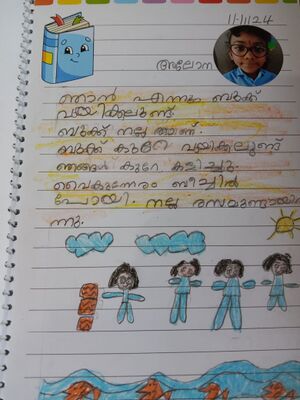 11/11/24
അലോന
ഞാൻ എന്നും ബുക്ക്
വായിക്കലുണ്ട്
ബുക്ക് നല്ലതാണ്.
ബുക്ക് കുറേ വായിക്കലുണ്ട്
ഞങ്ങൾ കുറേ കളിച്ചു.
വൈകുന്നേരം ബീച്ചിൽ
പോയി. നല്ല രസമുണ്ടായി
ന്നു.